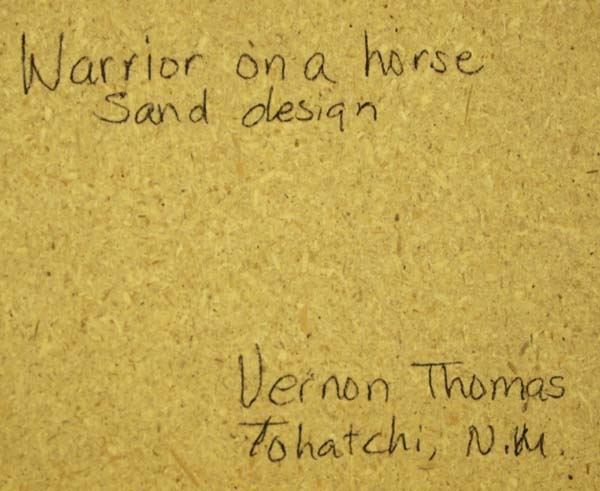 Warrior on a horse
Sand design
Vernon Thomas
Tohatchi, N.M.